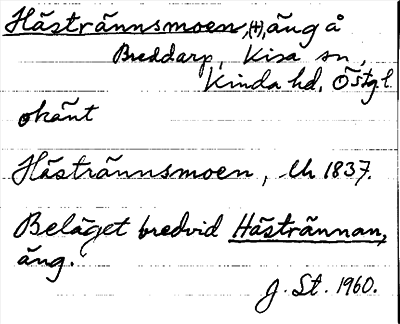 Hästrännsmoen, (†), äng å
Breddarp, Kisa sn,
Kinda hd, Östgl.
okänt
Hästrännsmoen, Lh 1837.
Beläget bredvid Hästrännan,
äng.
J. St. 1960.